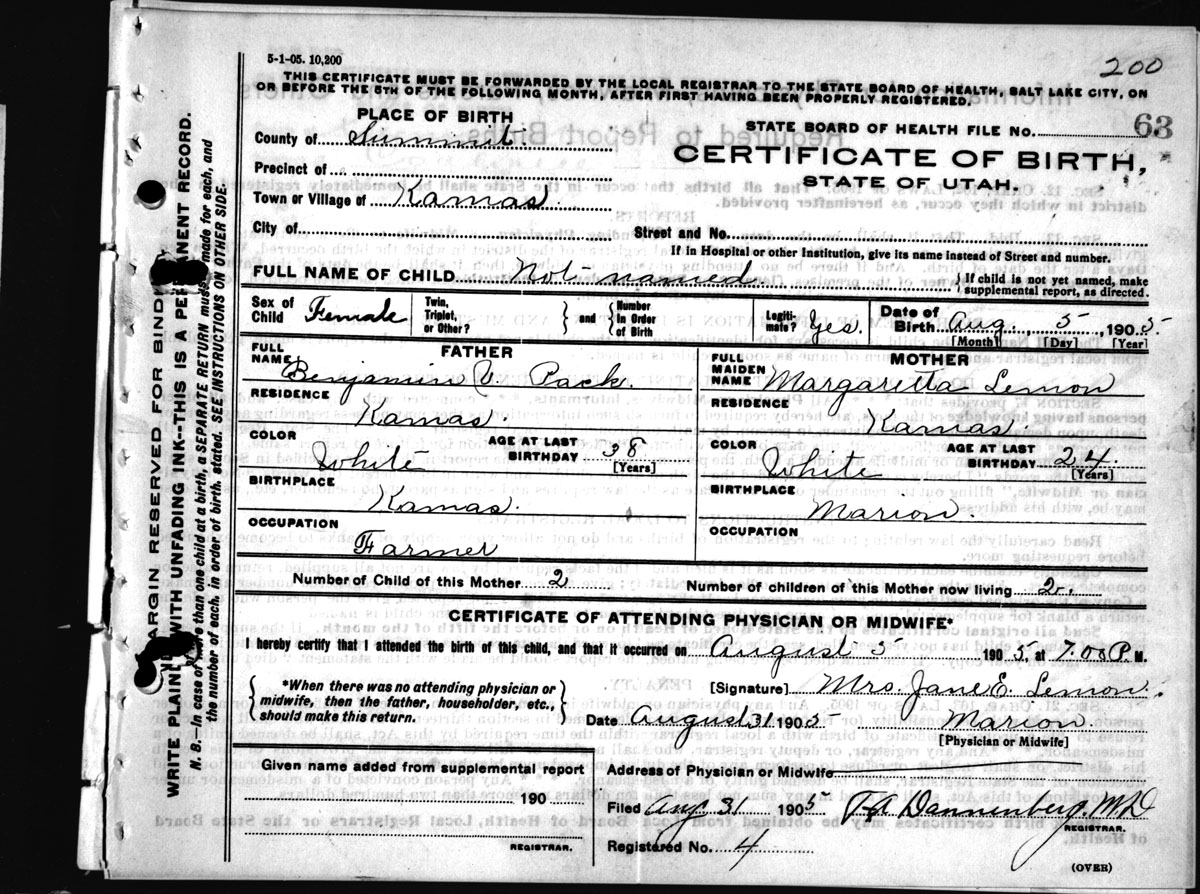 5-1-05. 10,200
200
THIS CERTIFICATE MUST BE FORWARDED BY THE LOCAL REGISTRAR TO THE STATE BOARD OF HEALTH, SALT LAKE CITY, ON
OR BEFORE THE 5TH OF THE FOLLOWING MONTH, AFTER FIRST HAVING BEEN PROPERLY REGISTERED.
PLACE OF BIRTH
County of Summit.
Precinct of
Town or Village of Kamas
City of
STATE BOARD OF HEALTH FILE NO. 63
CERTIFICATE OF BIRTH,
STATE OF UTAH.
Street and No.
If in Hospital or other Institution, give its name instead of Street and number.
FULL NAME OF CHILD Not named.
If child is not yet named, make
supplemental report, as directed.
Sex of Child Female
Twin, Triplet, or Other?
and
Number in Order of Birth
Legiti-mate? Yes.
Date of Birth Aug. 5, 1905
[Month] [Day] [Year]
FATHER
FULL NAME Benjamin V. Pack.
RESIDENCE Kamas.
COLOR White
AGE AT LAST BIRTHDAY 38
[Years]
BIRTHPLACE Kamas.
OCCUPATION Farmer
MOTHER
FULL MAIDEN NAME Margaretta Lemon
RESIDENCE Kamas.
COLOR White
AGE AT LAST BIRTHDAY 24
[Years]
BIRTHPLACE Marion.
OCCUPATION
Number of Child of this Mother 2
Number of children of this Mother now living 2.
CERTIFICATE OF ATTENDING PHYSICIAN OR MIDWIFE*
I hereby certify that I attended the birth of this child, and that it occurred on August 5 1905 at 7.00 P. M.
*When there was no attending physician or
midwife, then the father, householder, etc.,
should make this return.
[Signature] Mrs. Jane E. Lemon.
Date August 31 1905 Marion.
[Physician or Midwife]
Given name added from supplemental report
190
REGISTRAR.
Address of Physician or Midwife
Filed Aug 31 1905 Dannenberg, MD
REGISTRAR.
Registered No. 4
(OVER)
MARGIN RESERVED FOR BINDING
WRITE PLAINLY WITH UNFADING INK--THIS IS A PERMANENT RECORD.
N. B. In case of more than one child at a birth, a SEPARATE RETURN must be made for each, and
the number of each, in order of birth, stated. SEE INSTRUCTIONS ON OTHER SIDE.